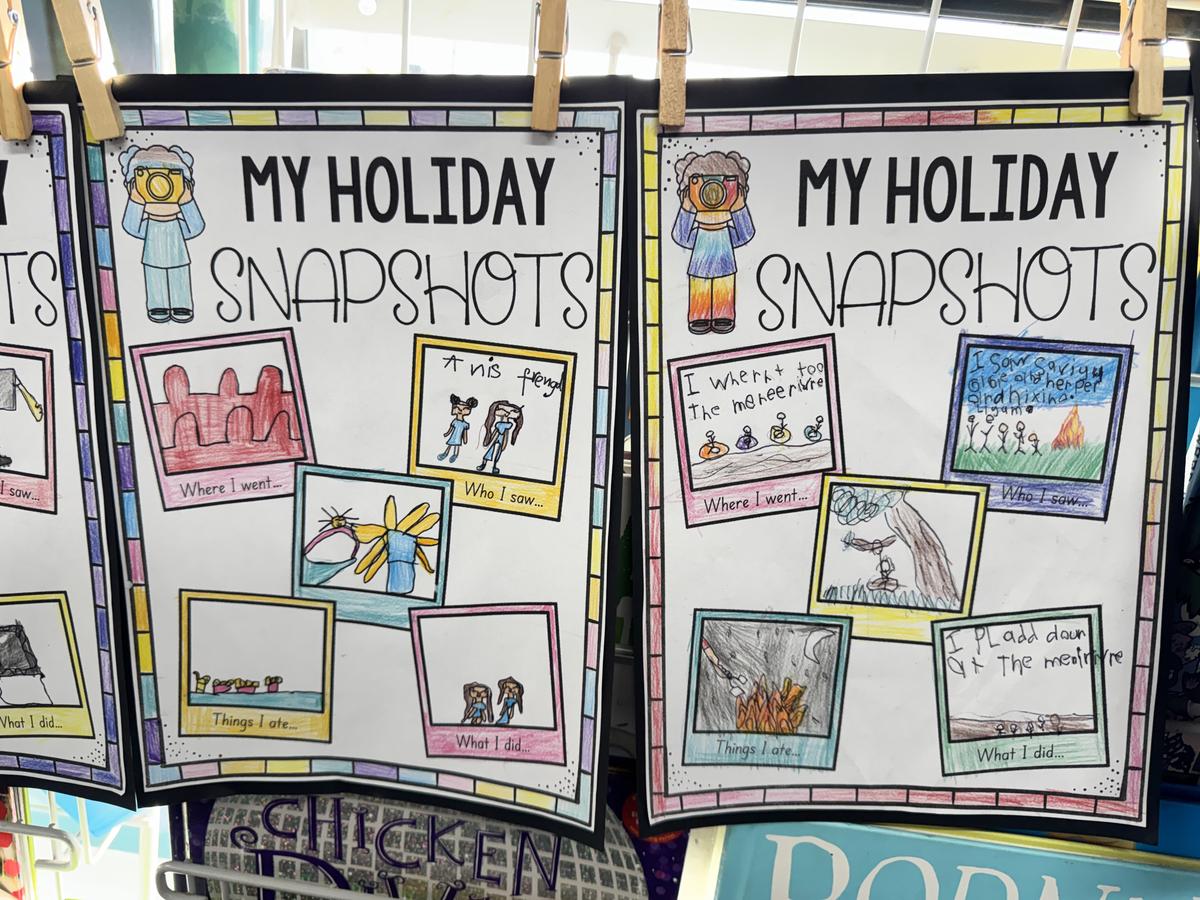 Y
TS
I saw...
What I did...
MY HOLIDAY
SNAPSHOTS
Where I went...
A nis frengd
Who I saw...
Things I ate...
What I did...
MY HOLIDAY
SNAPSHOTS
I wherht too
the meneerivre
Where I went...
I Saw Saviyy
and herper
and nixino.
Who I saw...
Things I ate...
I PLadd daun
at the menirivre
What I did...
CHICKEN